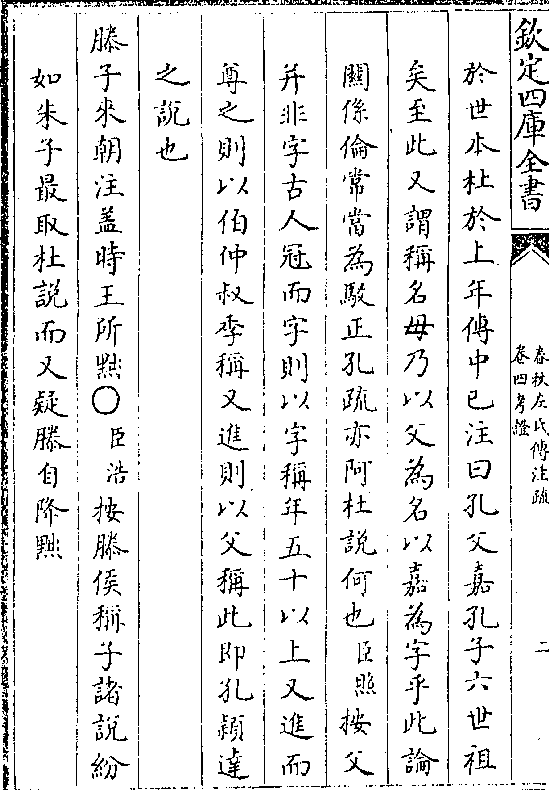 欽定四庫全書
春秋左氏傳注疏
卷四考證
二
於世本杜於上年傳中已注曰孔父嘉孔子六世祖
矣至此又謂稱名毋乃以父為名以嘉為字乎此論
關係倫常當為駁正孔疏亦阿杜說何也臣照按父
并非字古人冠而字則以字稱年五十以上又進而
尊之則以伯仲叔季稱又進則以父稱此即孔穎達
之說也
滕子來朝注蓋時王所黜〇臣浩按滕侯稱子諸說紛
如朱子最取杜說而又疑滕自降黜